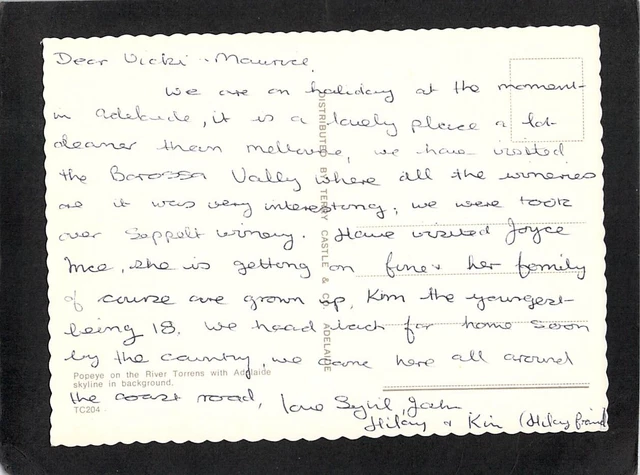 Dear Vicki & Maurice,
We are on holiday at the moment
in Adelaide, it is a lovely place a lot
cleaner than melbourne, we have visited
the Barossa Vally where all the wineries
are it was very interesting; we were took
over Seppelt winery. Have visited Joyce
she is getting on fine & her family
of course are grown up, Kim the youngest
being 18. We head back for home soon
by the country, we came here all around
the coast road, love Sybil, John
Hilary & Kim (Hilary friend)
DISTRIBUTED BY TERRY CASTLE & CO. ADELAIDE
Popeye on the River Torrens with Adelaide
skyline in background.
TC204